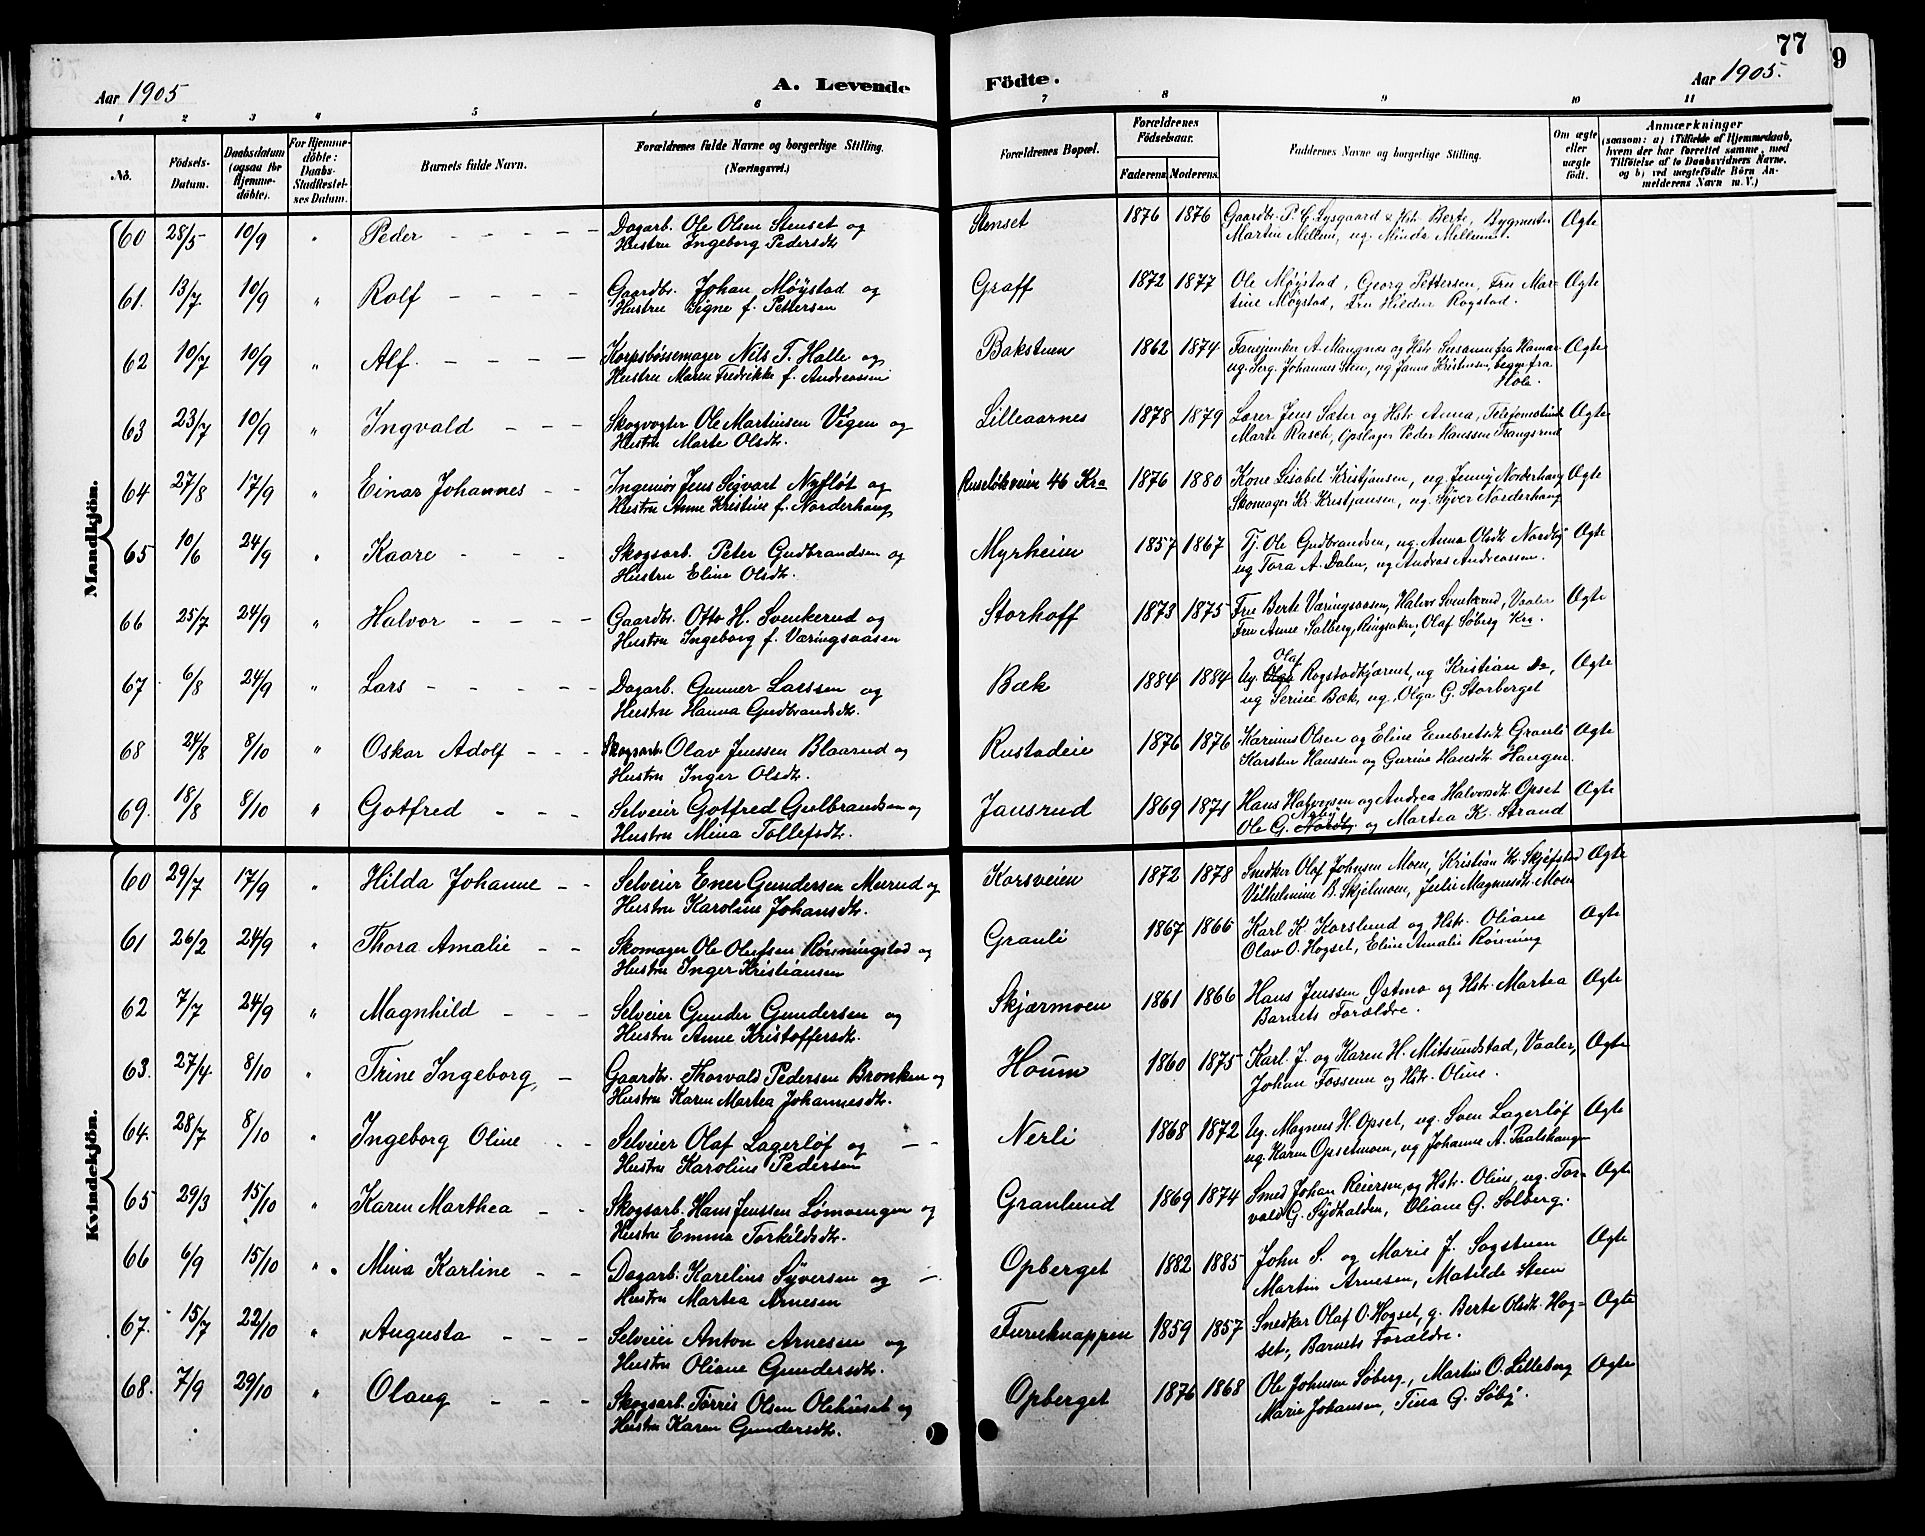 77
9
Aar 1905
A. Levende
Födte.
Aar 1905.
1 2 3 4 5 6 7 8 9 10 11
No.
Födsels-
Datum.
Daabsdatum
(ogsaa for
Hjemme-
döbte).
For Hjemme-
döbte:
Daabs-
Stadfæstel-
ses Datum.
Barnets fulde Navn.
Forældrenes fulde Navne og borgerlige Stilling.
(Næringsvei.)
Forældrenes Bopæl.
Forældrenes
Födselsaar.
Faderens. Moderens.
Faddernes Navne og borgerlige Stilling.
Om ægte
eller
uægte
födt.
Anmærkninger
(saasom: a) i Tilfælde af Hjemmedaab,
hvem der har forrettet samme, med
Tilföielse af to Daabsvidners Navne,
og b) ved uægtefödte Börn An-
melderens Navn m. V.)
Mandkjön.
60 28/5 10/9 " Peder Dagarb. Ole Olsen Stenset og Stenset 1876 1876 Gaardbr. P. G. Lysgaard & Hst. Berte, Bygmester Ægte
Hustru Ingeborg Pedersdt. Martin Mellem, ug. Minda Mellum.
61. 13/7 10/9 " Rolf Gaardbr. Johan Møystad og Graff 1872 1877 Ole Møystad, Georg Pettersen, Fru Mar- Ægte
Hustru Signe f. Pettersen tine Møystad, Fru Hilda Rogstad.
62 10/7 10/9 " Alf. Korpsbøssemager Nils T. Halle og Bakstuen 1862 1874 Fanejunker A. Mangnæs og Hst. Susanne fra Hamar Ægte
Hustru Maren Fredrikke f. Andreassen ug. Serg. Johannes Sten, ug Janna Kristensen, begge fra
Hole.
63 23/7 10/9 " Ingvald Skogvogter Ole Martinsen Vigen og Lilleaarnes 1878 1879 Lærer Jens Sæter og Hst. Anna, Telefonistinde Ægte
Hustru Marte Olsdt. Marte Rasch, Opslager Peder Hanssen Frangsrud
64 27/8 17/9 " Einar Johannes Ingeniør Jens Sigvart Nyfløt og Ruseløkveien 46 Kra 1876 1880 Kone Lisabet Kristjansen, ug. Jenny Norderhaug Ægte
Hustru Anne Kristine f. Norderhaug Skomager Kr. Kristjansen, ug. Syver Norderhaug
65 10/6 24/9 " Kaare Skogsarb. Peter Gudbrandsen og Myrheim 1857 1867 Tj. Ole Gudbrandsen, ug. Anna Olsdt. Nordby Ægte
Hustru Eline Olsdt. ug Tora A. Dalen, ug Andreas Andreassen.
66 25/7 24/9 " Halvor Gaardbr. Otto H. Svenkerud og Storhoff 1873 1875 Fru Berte Væringsaasen, Halvor Svenkerud, Vaaler Ægte
Hustru Ingeborg f. Væringsaasen Fru Anne Salberg, Ringsaker, Olaf Søberg Kra.
67 6/8 24/9 " Lars Dagarb. Gunner Larssen og Bæk 1884 1884 Ug. Olaf Rogstadkjærnet, ug Kristian Do, Ægte
Hustru Hanna Gudbrandsdt. ug Serine Bæk, ug. Olga G. Storberget
68 24/8 8/10 " Oskar Adolf Skogsarb. Olav Jenssen Blaarud og Rustadeie 1876 1876 Karinus Olsen og Eline Embretsdt. Granli Ægte
Hustru Inger Olsdt. Karsten Hanssen og Gurine Hansdt. Haugen.
69. 18/8 8/10 " Gotfred Selveier Gotfred Gulbrandsen og Jansrud 1869 1871 Hans Halvorsen og Andrea Halvorsdt. Opset Ægte
Hustru Mina Tollefsdt. Ole G. Nordby og Martea K. Strand
Kvindekjön.
60 29/7 17/9 " Hilda Johanne Selveier Ener Gundersen Murud og Korsveien 1872 1878 Snedker Olaf Johnsen Moen, Kristian Kr. Skjefstad Ægte
Hustru Karoline Johansdt. Vilhelmine B. Skjelmoen, Julie Magnusdt. Moen
61 26/2 24/9 " Thora Amalie Skomager Ole Olufsen Rønningstad og Granli 1867 1866 Karl K. Korslund og Hst. Oliane Ægte
Hustru Inger Kristiansen Olav O. Hogset, Eline Amalie Rønning
62 7/7 24/9 " Magnhild Selveier Gunder Gundersen og Skjærmoen 1861 1866 Hans Jenssen Østmo og Hst. Martea Ægte
Hustru Anne Kristoffersdt. Barnets Forældre.
63. 27/4 8/10 " Trine Ingeborg, Gaardbr. Thorvald Pedersen Bronken og Houm 1860 1875 Karl J. og Karen H. Mitsundstad, Vaaler, Ægte
Hustru Karen Martea Johannesdt. Johan Fossum og Hst. Oline.
64. 28/7 8/10 " Ingeborg Oline Selveier Olaf Lagerløf og Nerli 1868 1872 Ug. Magnus H. Opset, ug. Sven Lagerløf Ægte
Hustru Karoline Pedersen ug. Karen Opsetmoen, ug Johanne A. Paalshaugen
65 29/3 15/10 " Karen Marthea Skogsarb. Hans Jenssen Lømoengen og Granlund 1869 1874 Smed Johan Reiersen, og Hst. Oline, ug. Tor- Ægte
Hustru Emma Torkildsdt. vald G. Sydhalden, Oliane G. Solberg.
66 6/9 15/10 " Mina Karline Dagarb. Karelius Syversen og Opberget 1882 1885 John S. og Marie J. Sagstuen Ægte
Hustru Martea Arnesen Martin Arnesen, Matilde Steen
67. 15/7 22/10 " Augusta Selveier Anton Arnesen og Furuknappen 1859 1857 Snedker Olaf O. Hogset, g. Berte Olsdt. Hog- Ægte
Hustru Oliane Gundersdt. set, Barnets Forældre.
68. 7/9 29/10 " Olaug Skogsarb. Tørris Olsen Olehuset og Opberget 1876 1868 Ole Johnsen Søberg, Martin O. Lilleberg Ægte
Hustru Karen Gundersdt. Marie Johansen, Tina G. Søby.